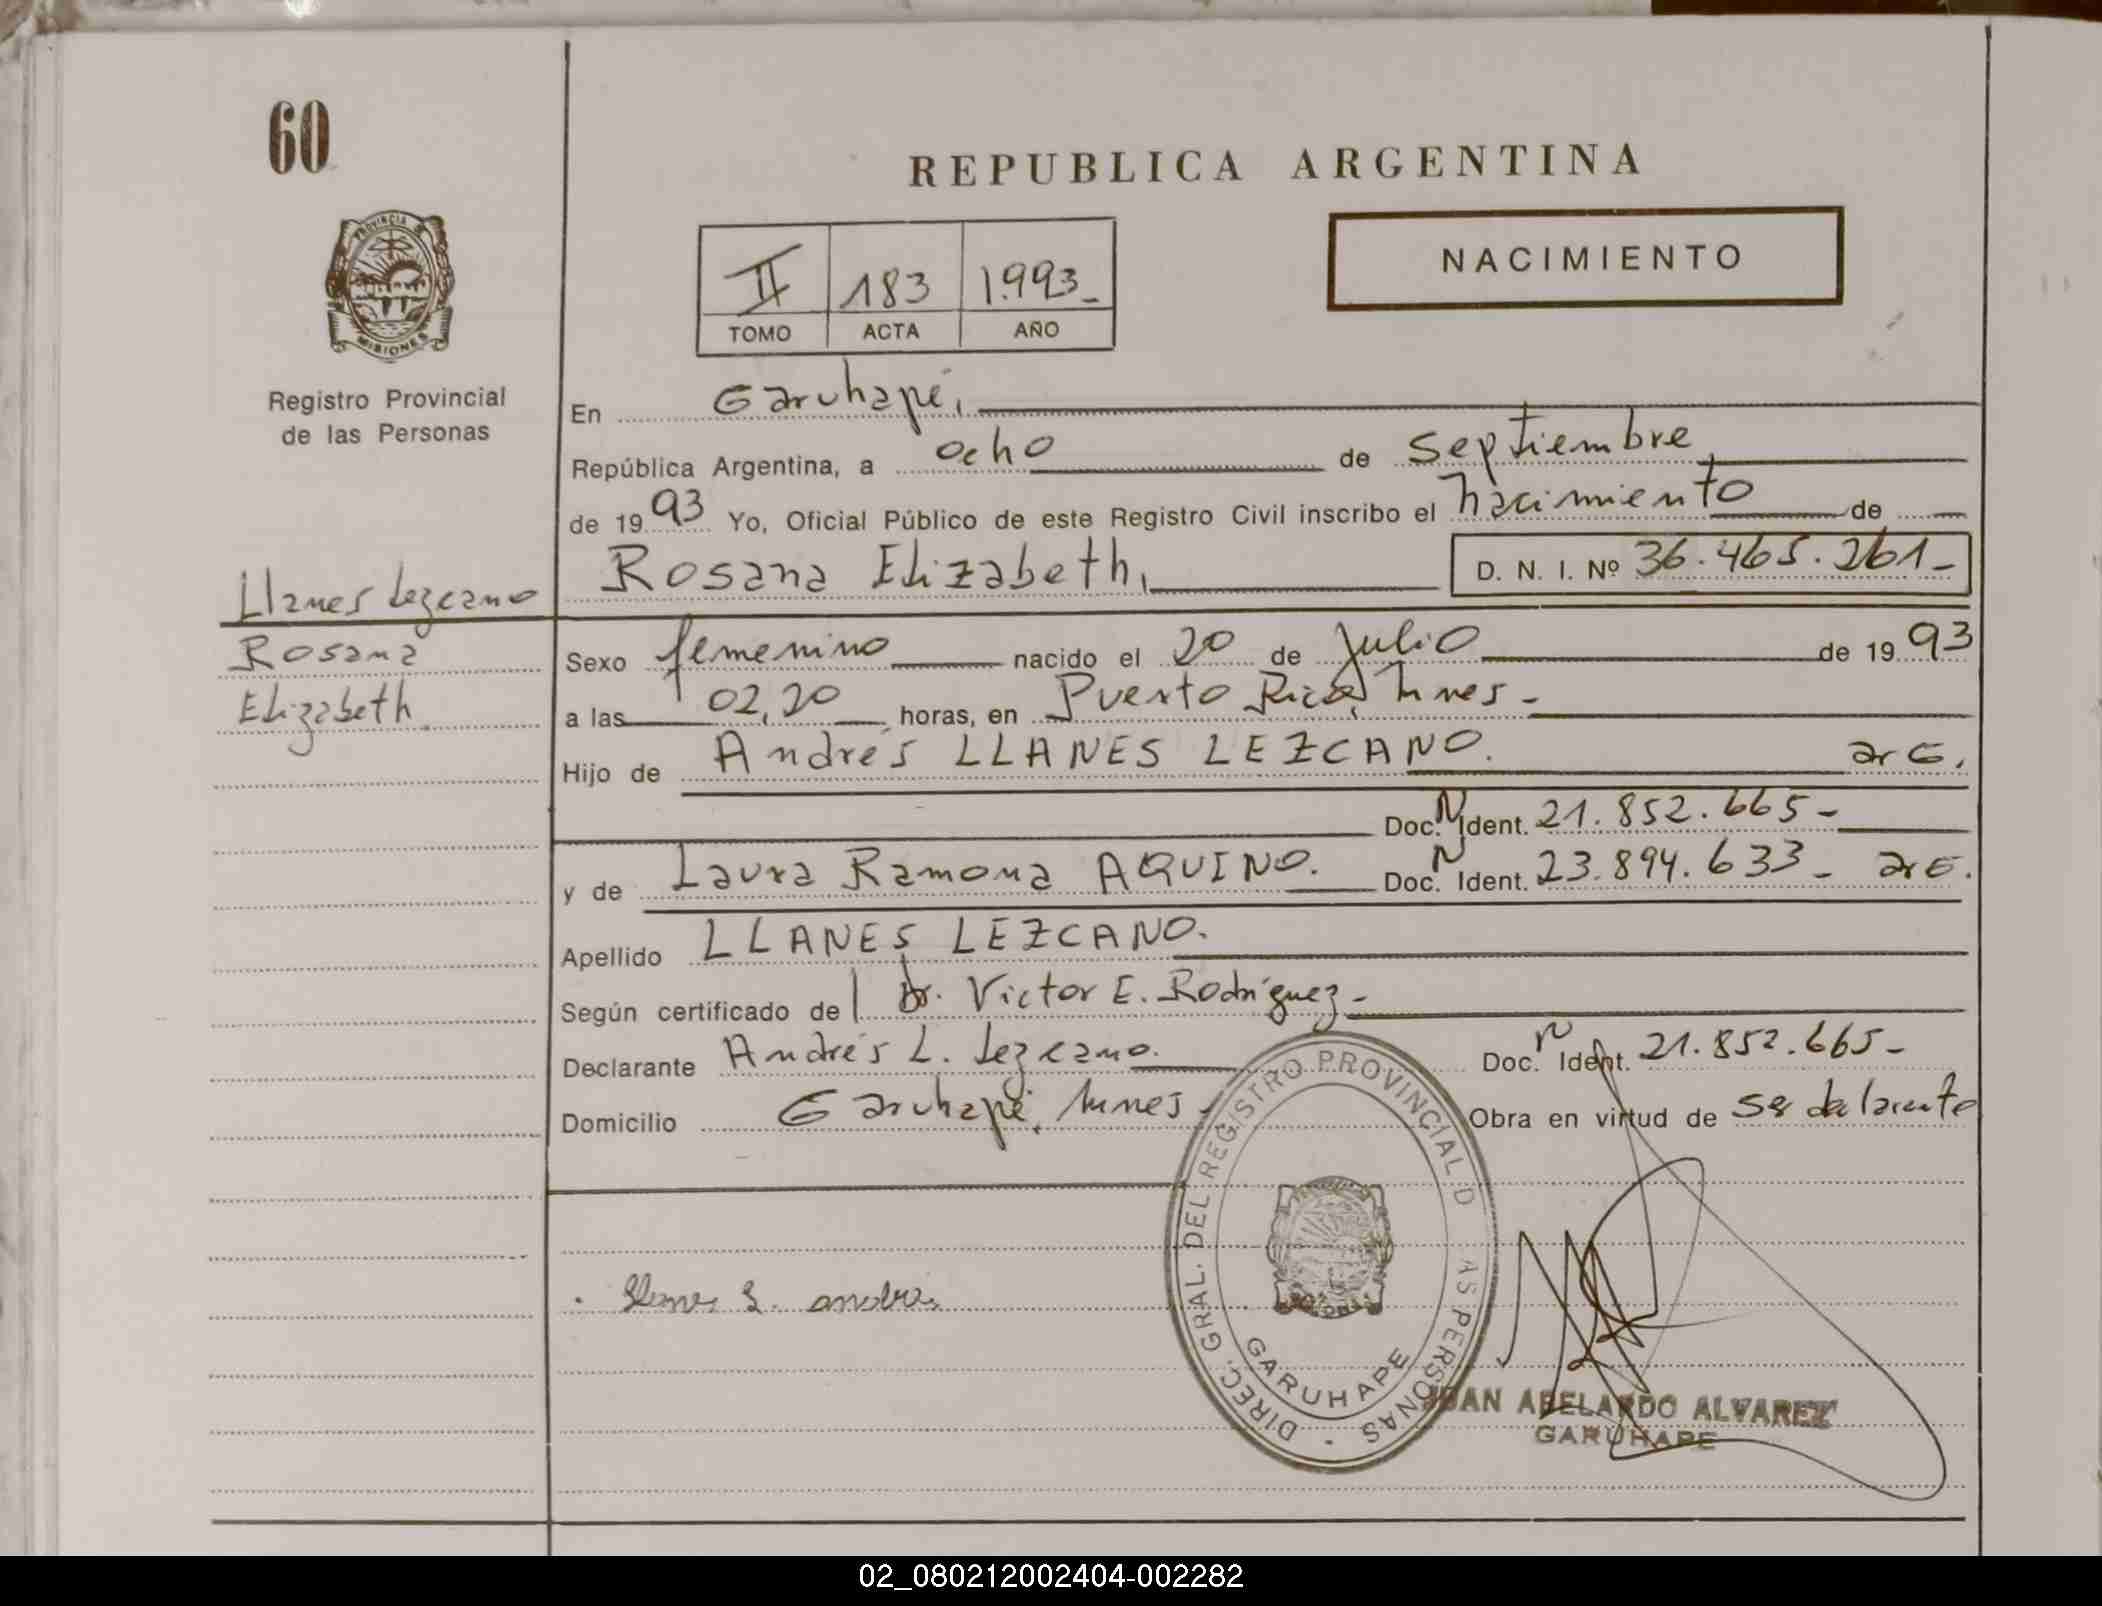 60
REPUBLICA ARGENTINA
NACIMIENTO
II 183 1.993_
TOMO ACTA AÑO
PROVINCIA D
MISIONES
Registro Provincial
de las Personas
En Garuhapé,
República Argentina, a ocho de septiembre
de 1993 Yo, Oficial Público de este Registro Civil inscribo el nacimiento de
Rosana Elizabeth, D. N. I. Nº 36.465.261-
Llanes Lezcano
Rosana
Elizabeth
Sexo femenino nacido el 20 de Julio de 1993
a las 02,20 horas, en Puerto Rico, Mnes-
Hijo de Andrés LLANES LEZCANO. arG.
Doc. N Ident. 21.852.665-
y de Laura Ramona AQUINO. Doc. N Ident. 23.894.633- arG.
Apellido LLANES LEZCANO.
Según certificado de Dr. Victor E. Rodríguez-
Declarante Andrés L. Lezcano. Doc. N Ident. 21.852.665-
Domicilio Garuhapé, Mnes- Obra en virtud de ser declarante
DIREC. GRAL. DEL REGISTRO PROVINCIAL D AS PERSONAS
GARUHAPE
JUAN ABELARDO ALVAREZ
GARUHAPE
02_080212002404-002282